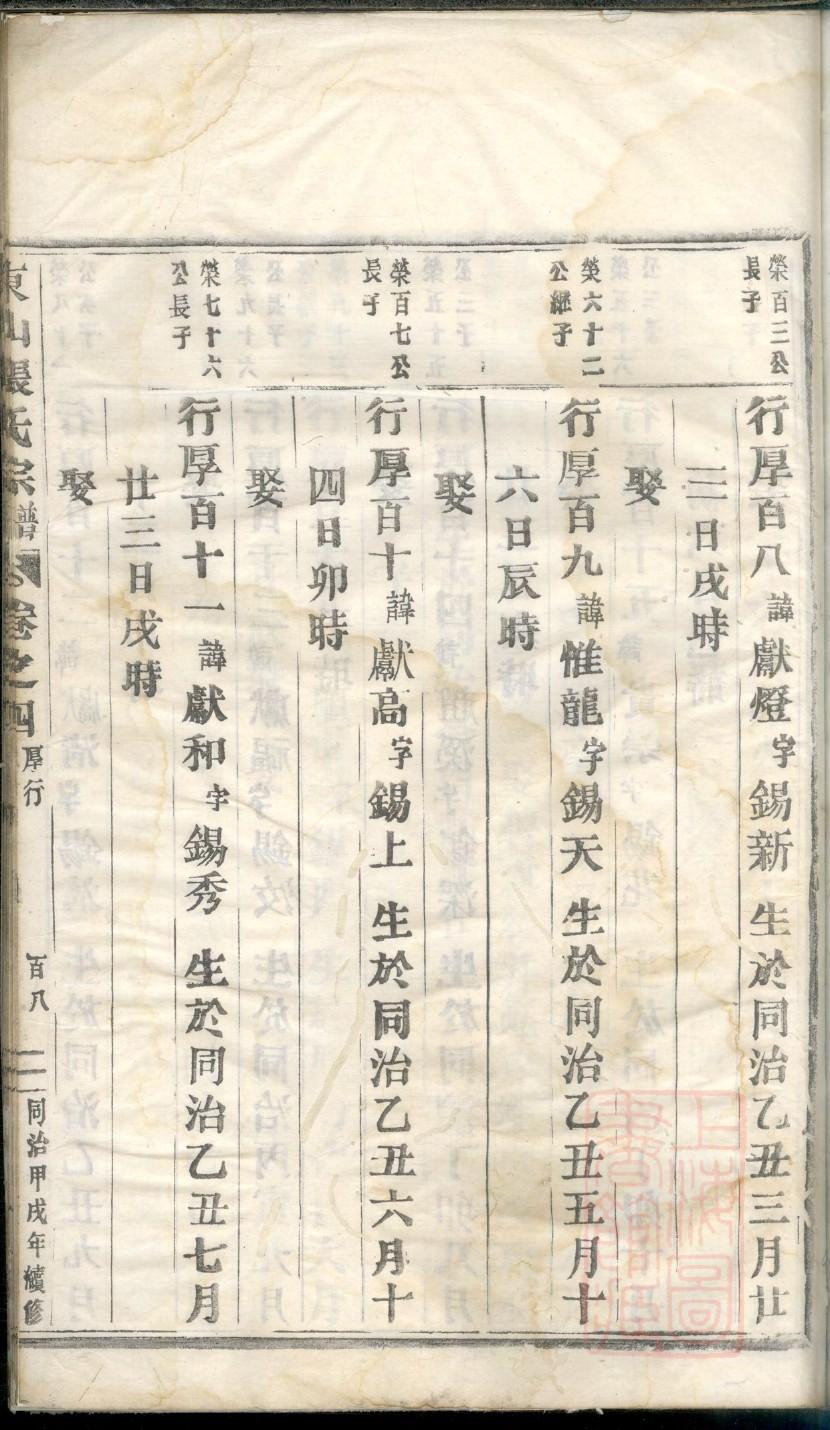 榮百三公
長子
行厚百八諱獻燈字錫新 生於同治乙丑三月廿
三日戌時
娶
榮六十二
公繼子
行厚百九諱惟龍字錫天 生於同治乙丑五月十
六日辰時
娶
榮百七公
長子
行厚百十諱獻高字錫上 生於同治乙丑六月十
四日卯時
娶
榮七十六
公長子
行厚百十一諱獻和字錫秀 生於同治乙丑七月
廿三日戌時
娶
東山張氏宗譜 卷之四 厚行 百八 同治甲戌年續修
上海圖書館藏